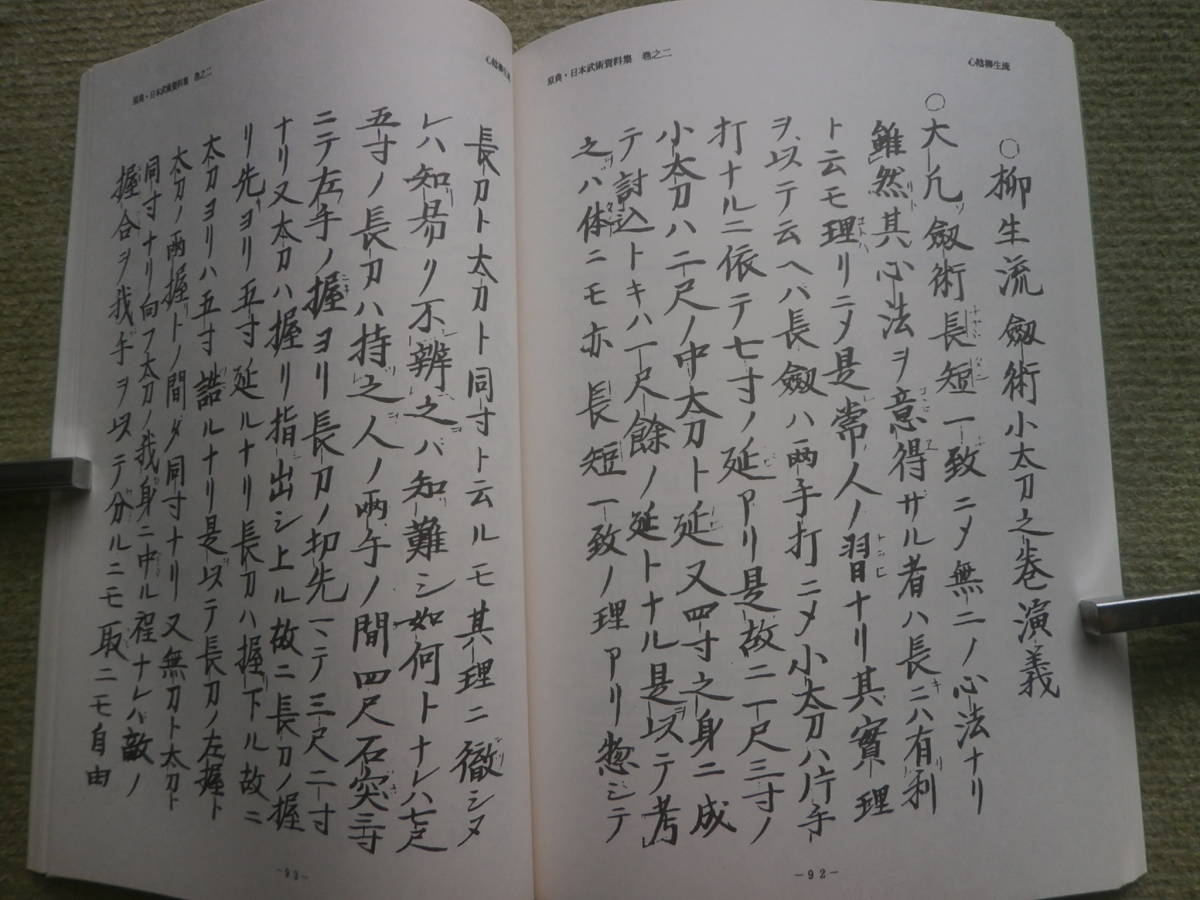 心陰柳生流
原典・日本武術資料集 巻之二
○柳生流劔術小太刀之巻演義
○大凡劔術長短一致ニメ無二ノ心法ナリ
雖然其心法ヲ意得ザル者ハ長ニハ有利
ト云モ理リニメ是常人ノ習ナリ其實理
ヲ以テ云ヘハ長劔ハ兩手打ニメ小太刀ハ片手
打ナルニ依テ七寸ノ延アリ是故ニ一尺三寸ノ
小太刀ハ二尺ノ中太刀ト延又四寸之身ニ成
テ討込トキハ一尺餘ノ延トナル是以テ考
之バ体ニモ亦長短一致ノ理アリ惣シテ
-92-
心陰柳生流
原典・日本武術資料集 巻之二
長刀ト太刀ト同寸ト云ルモ其理ニ徹シヌ
レハ知易リ不辨之バ知難シ如何トナレハ七尺
五寸ノ長刀ハ持之人ノ兩手ノ間四尺石突三寸
ニテ左手ノ握ヨリ長刀ノ切先ヘテ三尺二寸
ナリ又太刀ハ握リ指出シ上ル故ニ長刀ノ握
リ先ヨリ五寸延ルナリ長刀ハ握下ル故ニ
太刀ヨリハ五寸詰ルナリ是以テ長刀ノ左握ト
太刀ノ兩握トノ間ダ同寸ナリ又無刀ト太刀ト
同寸ナリ向フ太刀ノ我身ニ中ル程ナレハ敵ノ
握合ヲ我手ヲ以テ分ルニモ取ニモ自由
-93-